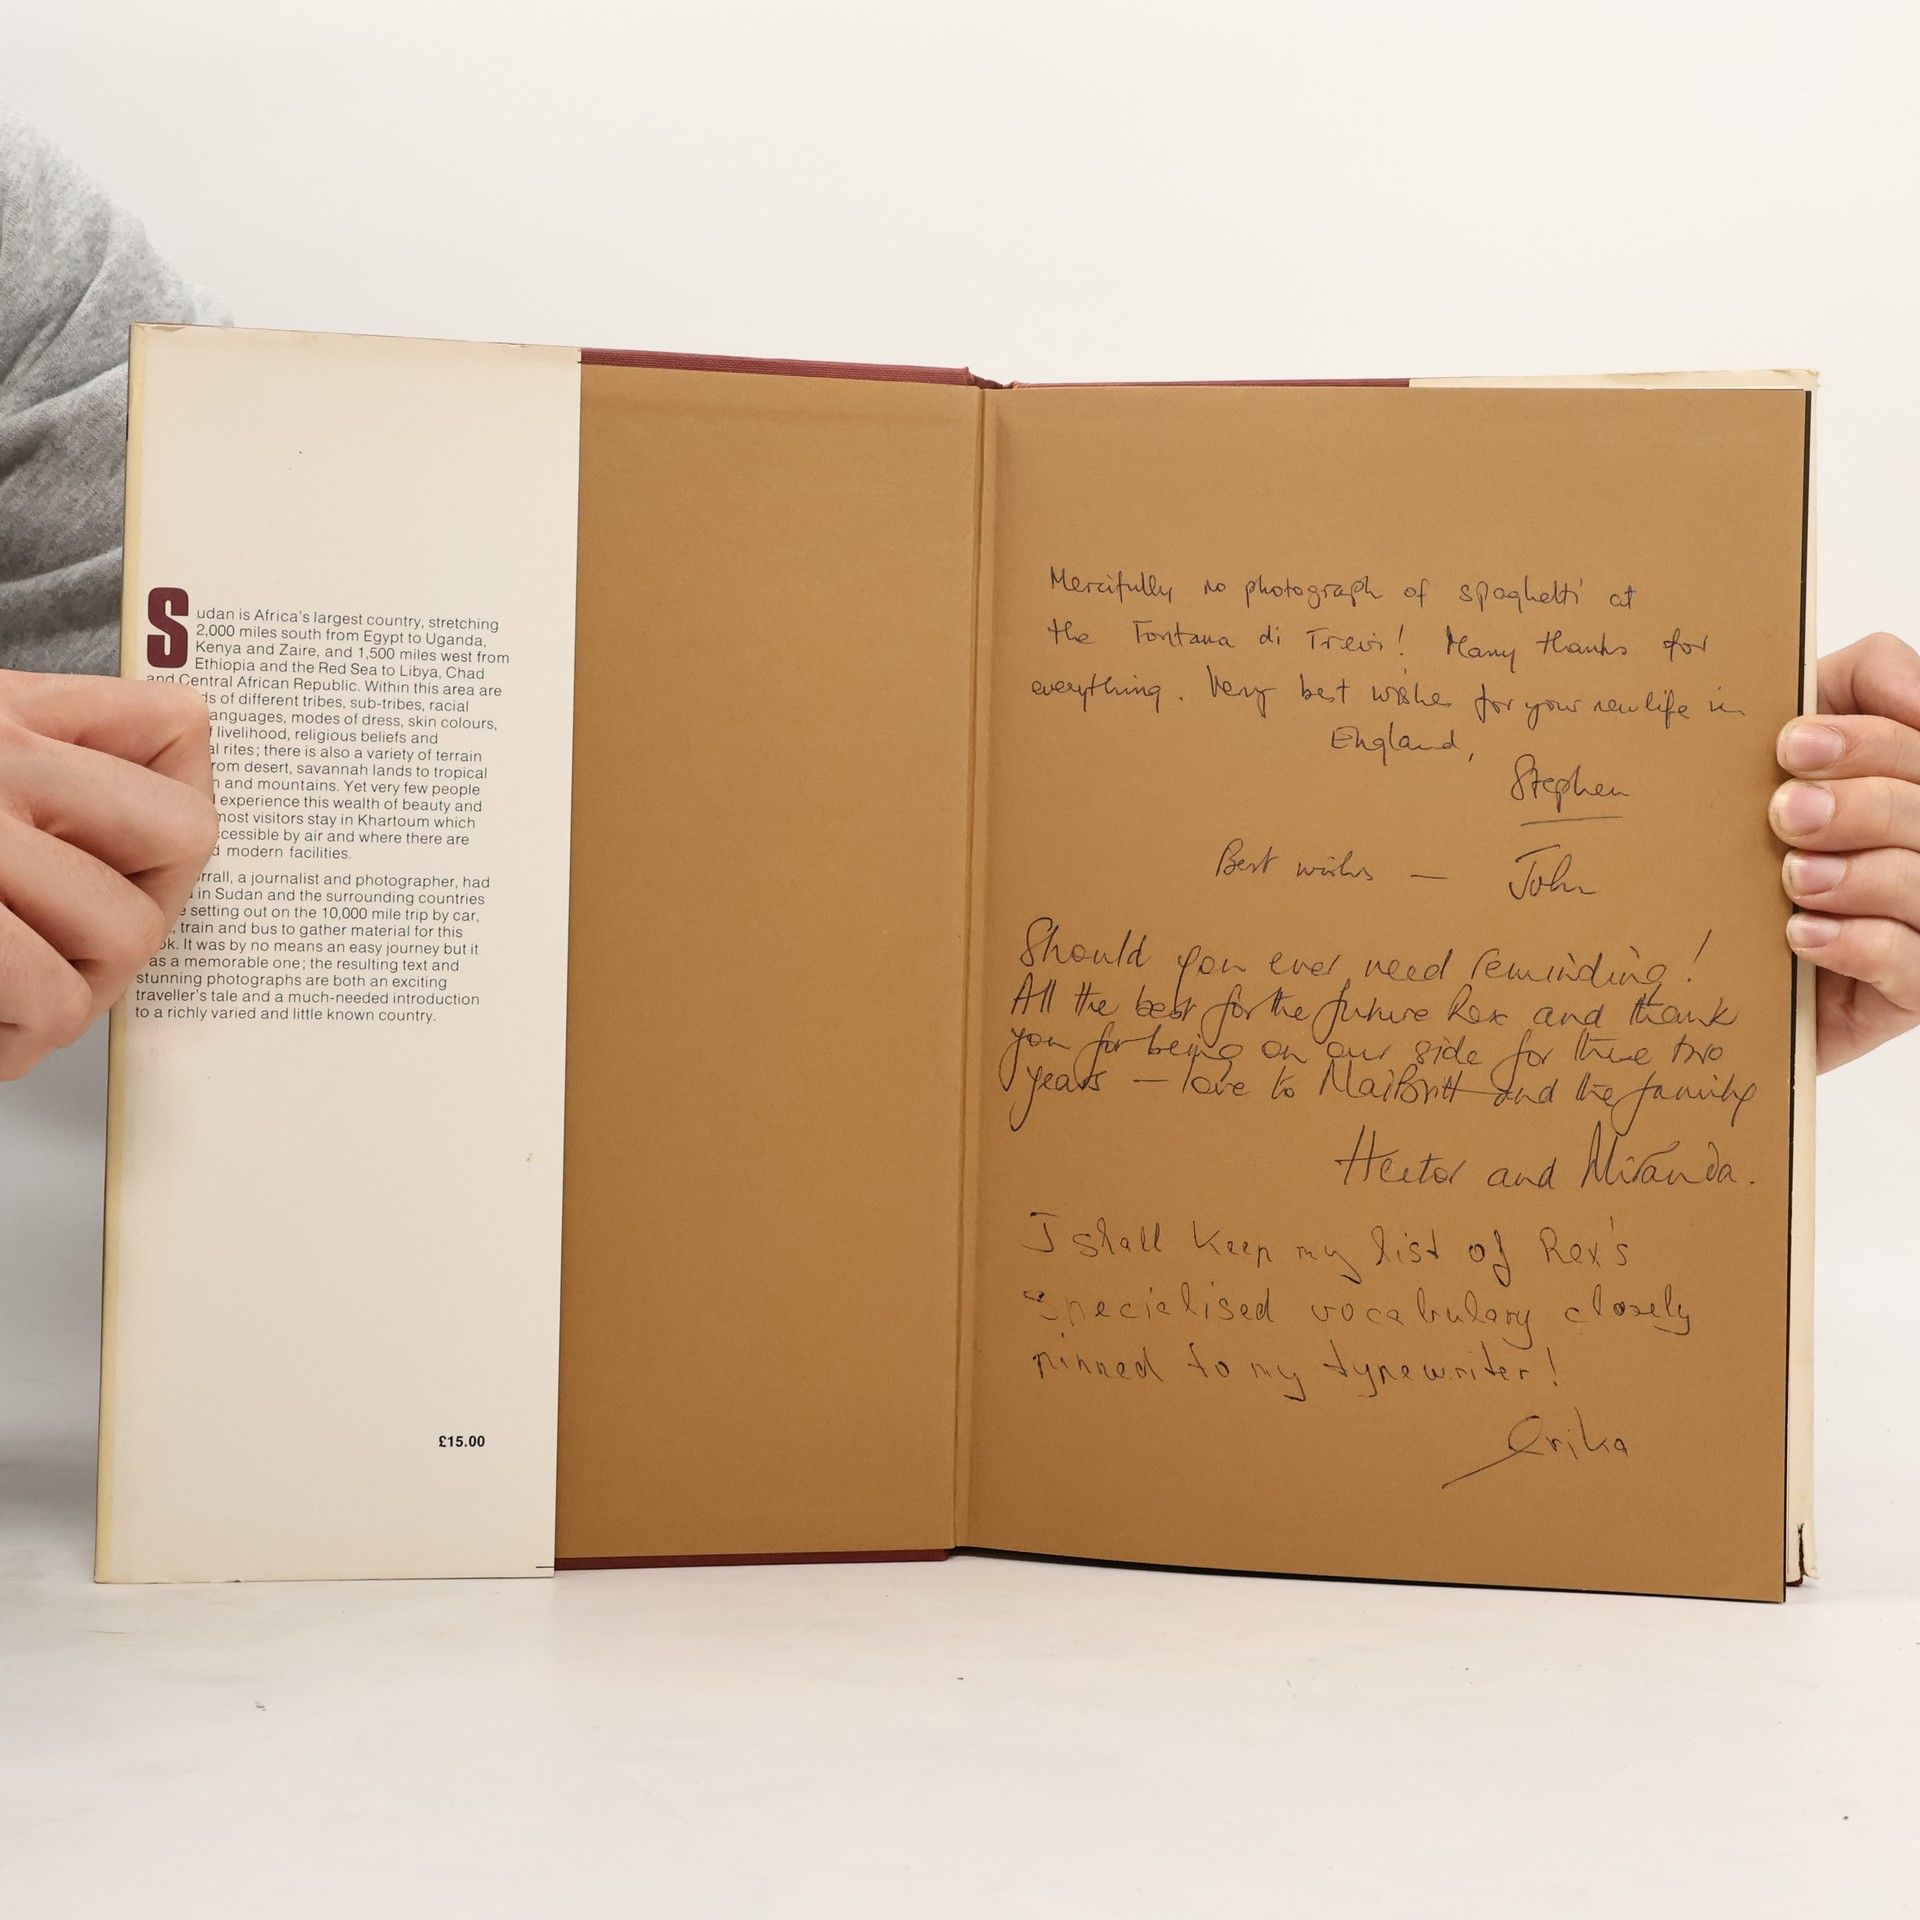 Sudan is Africa's largest country, stretching
2,000 miles south from Egypt to Uganda,
Kenya and Zaire, and 1,500 miles west from
Ethiopia and the Red Sea to Libya, Chad
and Central African Republic. Within this area are
of different tribes, sub-tribes, racial
languages, modes of dress, skin colours,
livelihood, religious beliefs and
rites; there is also a variety of terrain
from desert, savannah lands to tropical
and mountains. Yet very few people
experience this wealth of beauty and
most visitors stay in Khartoum which
accessible by air and where there are
modern facilities.
a journalist and photographer, had
in Sudan and the surrounding countries
setting out on the 10,000 mile trip by car,
train and bus to gather material for this
It was by no means an easy journey but it
as a memorable one; the resulting text and
stunning photographs are both an exciting
traveller's tale and a much-needed introduction
to a richly varied and little known country.
£15.00
Mercifully no photograph of spaghetti at
the Fontana di Trevi! Many thanks for
everything. Very best wishes for your new life in
England,
Stephen
Best wishes — John
Should you ever need reminding!
All the best for the future Rex and thank
you for being on our side for these two
years — love to MaiBritt and the family
Hector and Miranda.
I shall keep my list of Rex's
specialised vocabulary closely
pinned to my typewriter!
Erika